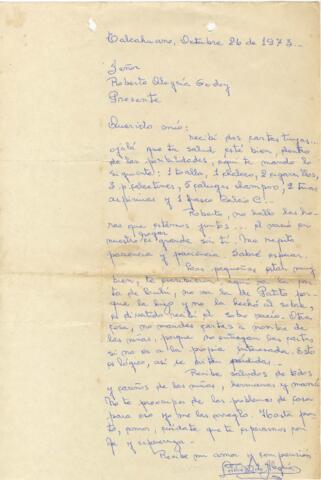 Talcahuano, Octubre 26 de 1973...
Señor
Roberto Alegría Godoy
Presente
Querido mío:
recibí dos cartas tuyas...
ojalá que tu salud esté bien, dentro
de las posibilidades, aquí te mando lo
siguiente: 1 toalla, 1 2 cigarrillos,
3 p. calcetines, 5 2 tiras
aspirinas y 1 frasco Calcio C...
Roberto, no hallo las ho-
ras que estemos juntos... el vacío en
nuestro hogar es grande sin ti. Me repito
paciencia y paciencia. Sabré esperar.
Las pequeñas están muy
bien, te escribieron la car-
ta de no va la de Patito por-
que la hizo y no la hechó al sobre,
el sobre vacío. Otra
cosa, no mandes cartas a nombre de
las niñas, porque no entregan las cartas
si no es a la propia interesada. Esto
es lógico, así se perdidas.
Recibe saludos de todos
y cariños de las niñas, hermanas y mamá
No te preocupes de los problemas de casa
para eso yo me las arreglo. Hasta pron-
to, amor, cuídate que te esperamos con
fe y esperanza.
Recibe mi amor y comprensión